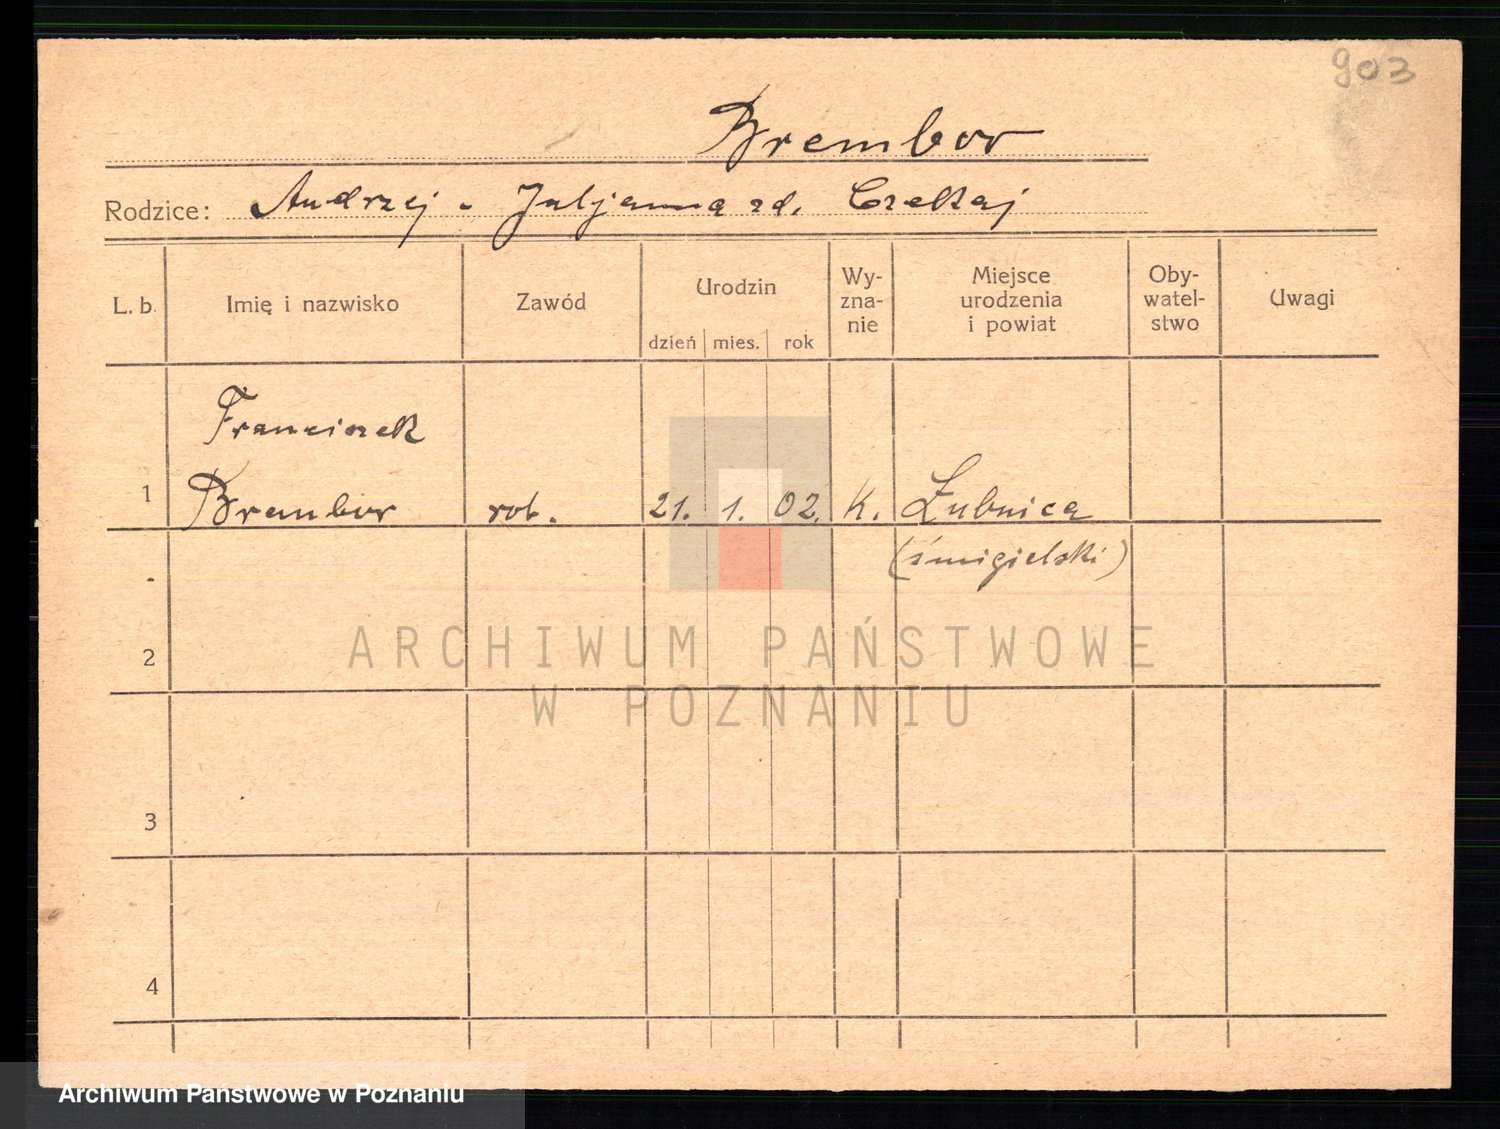 903
Brembor
Rodzice: Andrzej - Juljanna zd. Czekaj
L. b. Imię i nazwisko Zawód Urodzin dzień mies. rok Wy-zna-nie Miejsce urodzenia i powiat Oby-watel-stwo Uwagi
Franciszek
1 Brembor rob. 21. 1. 02. K. Łubnica
(śmigielski)
2
3
4
ARCHIWUM PAŃSTWOWE
W POZNANIU
Archiwum Państwowe w Poznaniu